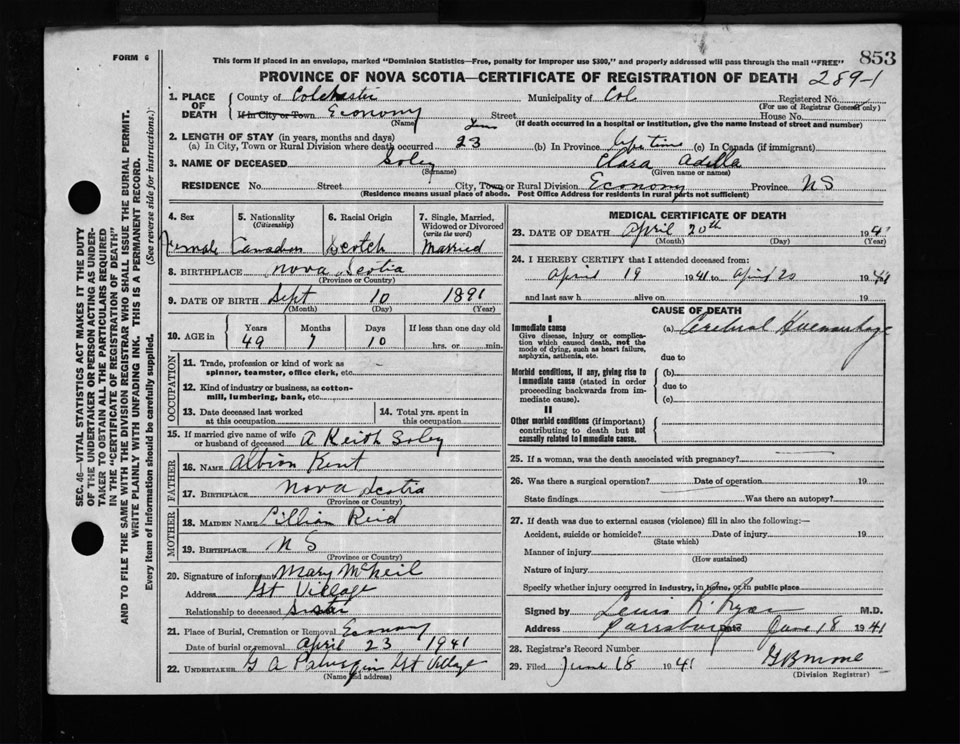 FORM 6
This form if placed in an envelope, marked "Dominion Statistics—Free, penalty for improper use $300," and properly addressed will pass through the mail "FREE"
853
PROVINCE OF NOVA SCOTIA—CERTIFICATE OF REGISTRATION OF DEATH 289-1
1. PLACE OF DEATH
County of Colchester Municipality of Col. Registered No.
(For use of Registrar General only)
If in City or Town Economy Street House No.
(Name) (If death occurred in a hospital or institution, give the name instead of street and number)
2. LENGTH OF STAY (in years, months and days)
(a) In City, Town or Rural Division where death occurred 23 yrs (b) In Province life time (c) In Canada (if immigrant)
3. NAME OF DECEASED Soley Clara Adella
(Surname) (Given name or names)
RESIDENCE No. Street City, Town or Rural Division Economy Province NS
(Residence means usual place of abode. Post Office Address for residents in rural parts not sufficient)
4. Sex Female
5. Nationality (Citizenship) Canadian
6. Racial Origin Scotch
7. Single, Married, Widowed or Divorced (write the word) Married
8. BIRTHPLACE Nova Scotia
(Province or Country)
9. DATE OF BIRTH Sept 10 1891
(Month) (Day) (Year)
10. AGE in Years Months Days If less than one day old
49 7 10 hrs. or min.
OCCUPATION
11. Trade, profession or kind of work as spinner, teamster, office clerk, etc. -
12. Kind of industry or business, as cotton-mill, lumbering, bank, etc.
13. Date deceased last worked at this occupation
14. Total yrs. spent in this occupation
15. If married give name of wife or husband of deceased A Keith Soley
FATHER
16. NAME Albion Kent
17. BIRTHPLACE Nova Scotia
(Province or Country)
MOTHER
18. MAIDEN NAME Lillian Reid
19. BIRTHPLACE N S
(Province or Country)
20. Signature of informant Mary McNeil
Address Gt Village
Relationship to deceased Sister
21. Place of Burial, Cremation or Removal Economy
Date of burial or removal April 23 1941
22. UNDERTAKER G A Gt Village
(Name and address)
MEDICAL CERTIFICATE OF DEATH
23. DATE OF DEATH April 20th 1941
(Month) (Day) (Year)
24. I HEREBY CERTIFY that I attended deceased from:
April 19 1941 to April 20 1941
and last saw h alive on 19
CAUSE OF DEATH
I
Immediate cause
Give disease, injury or complication which caused death, not the mode of dying, such as heart failure, asphyxia, asthenia, etc.
(a) Cerebral Haemorrhage
due to
Morbid conditions, if any, giving rise to immediate cause (stated in order proceeding backwards from immediate cause).
(b)
due to
(c)
II
Other morbid conditions (if important) contributing to death but not causally related to immediate cause.
25. If a woman, was the death associated with pregnancy?
26. Was there a surgical operation? Date of operation 19
State findings Was there an autopsy?
27. If death was due to external causes (violence) fill in also the following:—
Accident, suicide or homicide? Date of injury 19
(State which)
Manner of injury
(How sustained)
Nature of injury
Specify whether injury occurred in industry, in home, or in public place
Signed by Lewis R. Ryan M.D.
Address Parrsboro Date June 18 1941
28. Registrar's Record Number
29. Filed June 18 1941
(Division Registrar)
SEC. 46—VITAL STATISTICS ACT MAKES IT THE DUTY
OF THE UNDERTAKER OR PERSON ACTING AS UNDER-
TAKER TO OBTAIN ALL THE PARTICULARS REQUIRED
IN THE "CERTIFICATE OF REGISTRATION OF DEATH"
AND TO FILE THE SAME WITH THE DIVISION REGISTRAR WHO SHALL ISSUE THE BURIAL PERMIT.
WRITE PLAINLY WITH UNFADING INK. THIS IS A PERMANENT RECORD.
Every item of information should be carefully supplied. (See reverse side for instructions.)